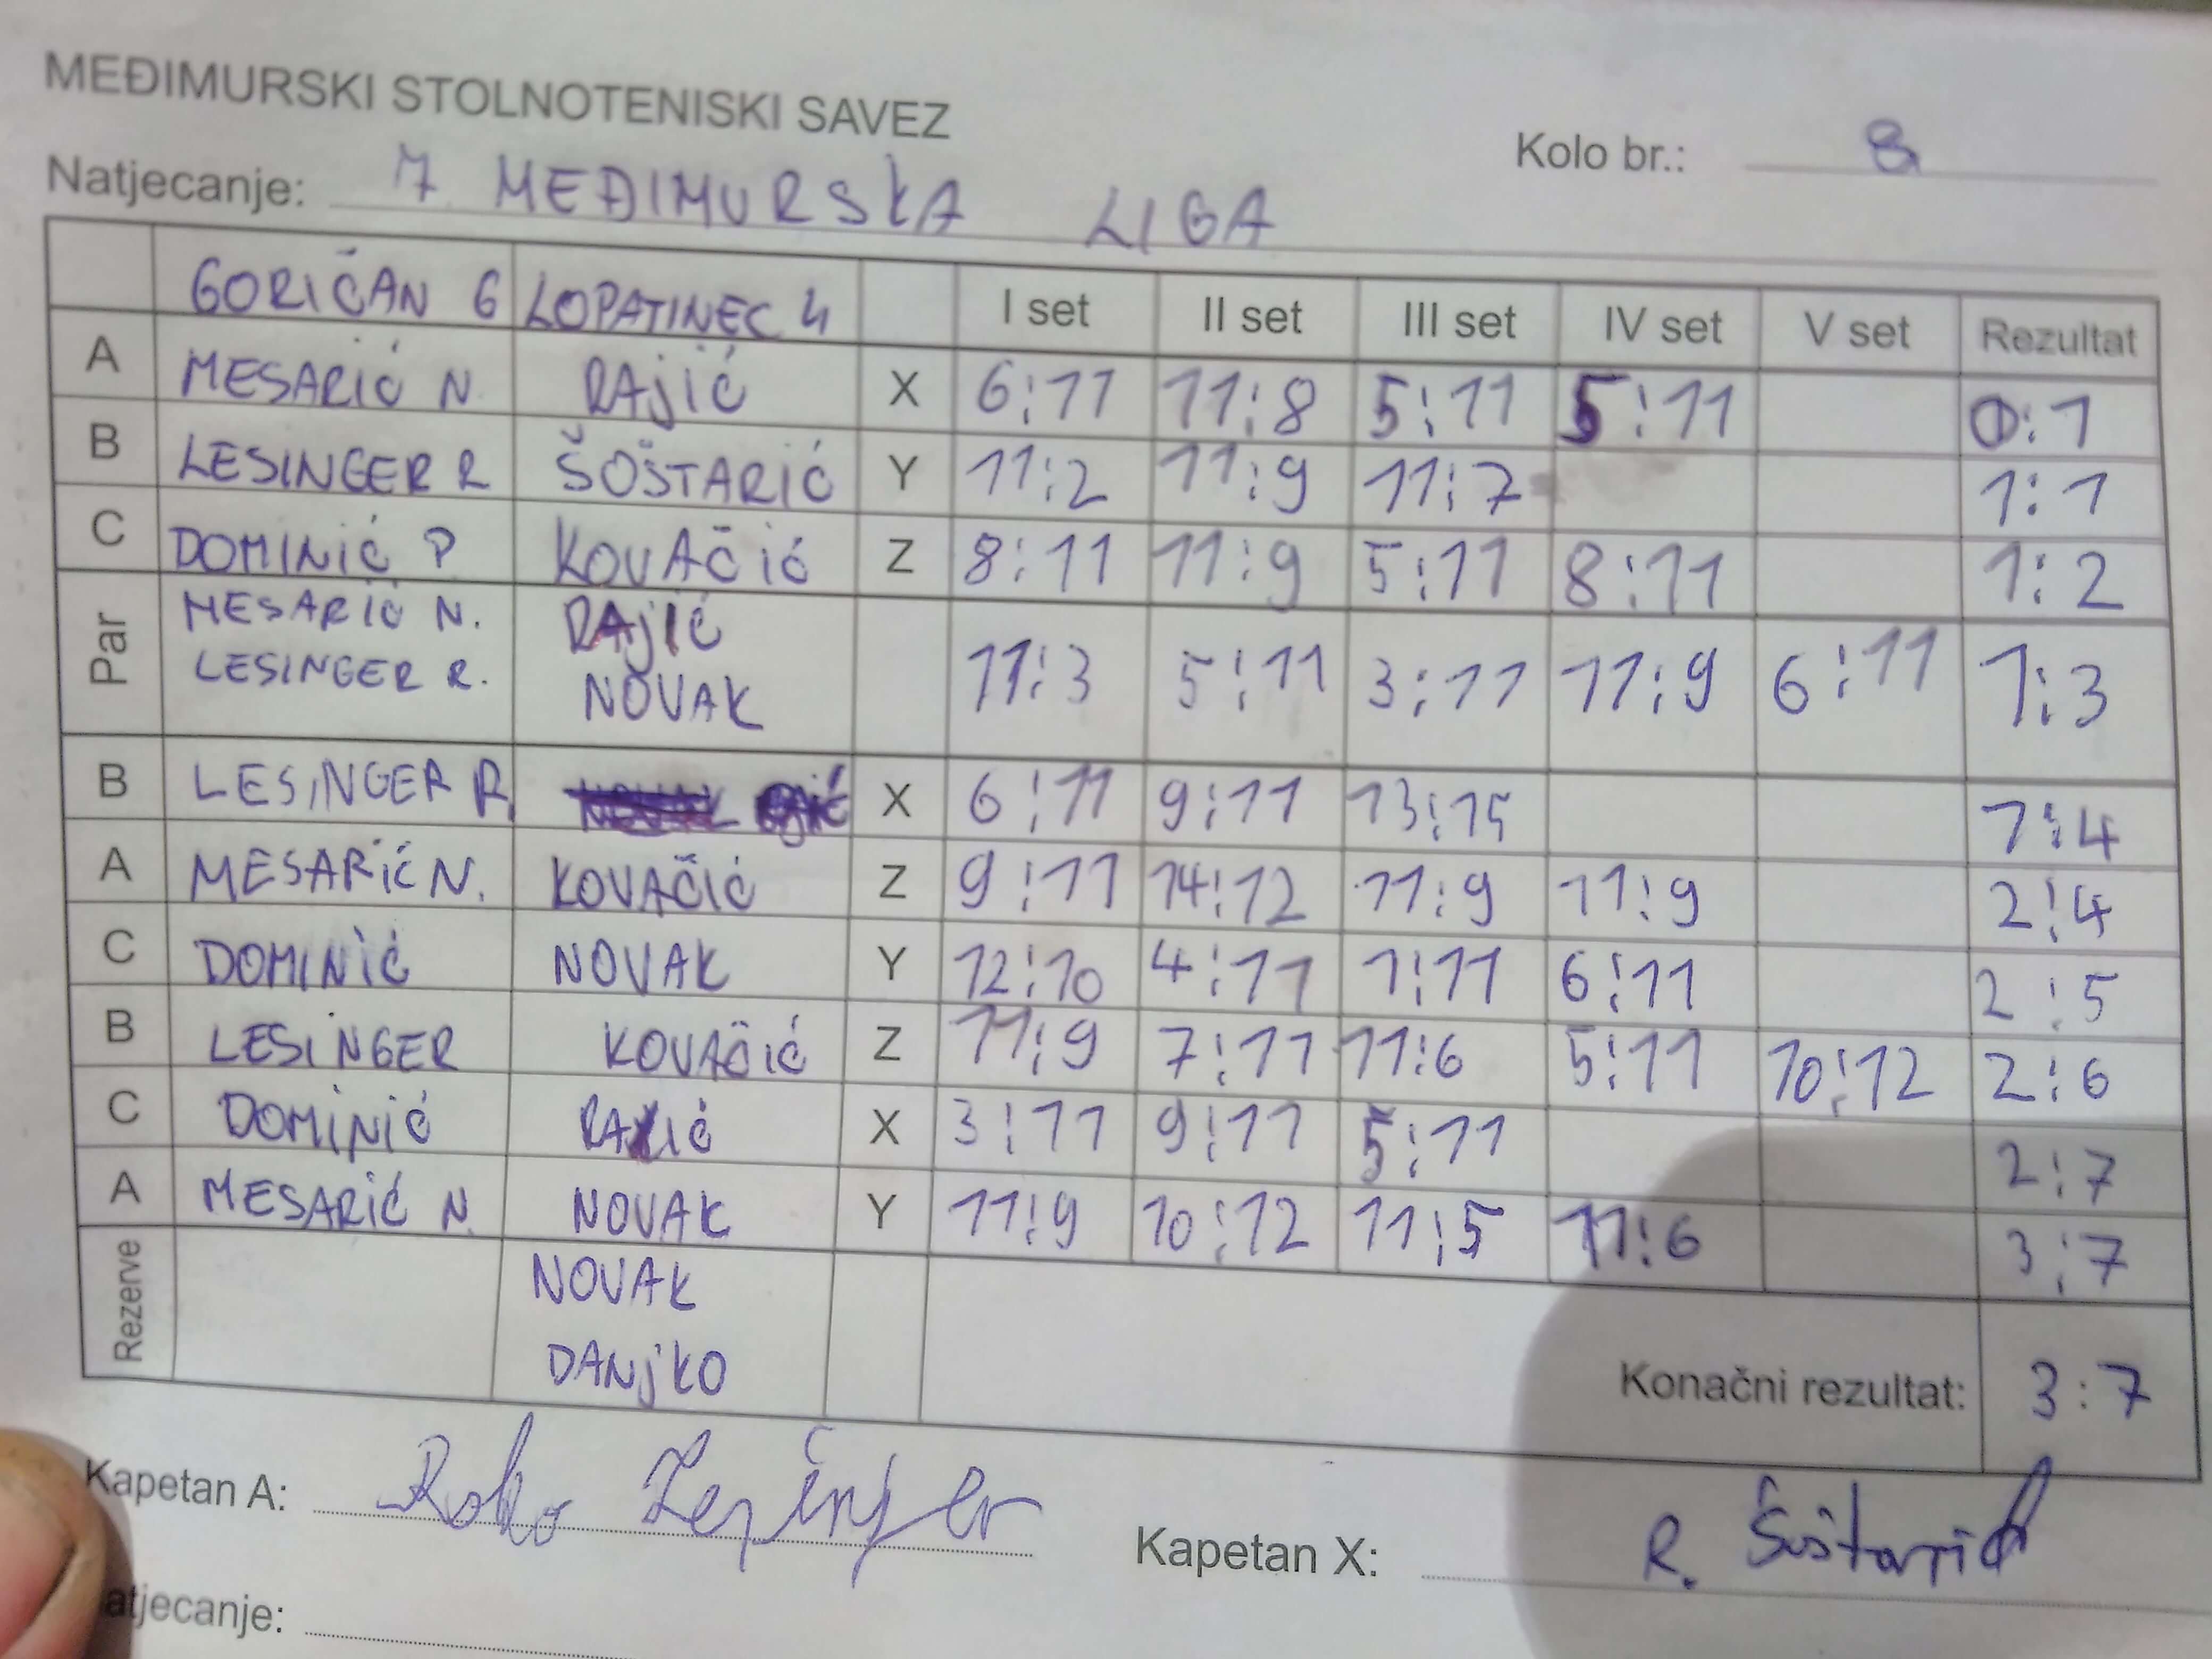 MEĐIMURSKI STOLNOTENISKI SAVEZ
Kolo br.: 8
Natjecanje: 7 MEĐIMURSKA LIGA
GORIČAN 6 LOPATINEC 4 I set II set III set IV set V set Rezultat
A MESARIĆ N. RAJIĆ X 6:11 11:8 5:11 5:11 0:1
B LESINGER R ŠOŠTARIĆ Y 11:2 11:9 11:7 1:1
C DOMINIĆ P KOVAČIĆ Z 8:11 11:9 5:11 8:11 1:2
Par MESARIĆ N. RAJIĆ
LESINGER R. NOVAK 11:3 5:11 3:11 11:9 6:11 1:3
B LESINGER R. X 6:11 9:11 13:15 1:4
A MESARIĆ N. KOVAČIĆ Z 9:11 14:12 11:9 11:9 2:4
C DOMINIĆ NOVAK Y 12:10 4:11 1:11 6:11 2:5
B LESINGER KOVAČIĆ Z 11:9 7:11 11:6 5:11 10:12 2:6
C DOMINIĆ RAJIĆ X 3:11 9:11 5:11 2:7
A MESARIĆ N. NOVAK Y 11:9 10:12 11:5 11:6 3:7
Rezerve NOVAK
DANJKO
Konačni rezultat: 3:7
Kapetan A: Roko Lesinger
Kapetan X: R. Šoštarić
atjecanje: